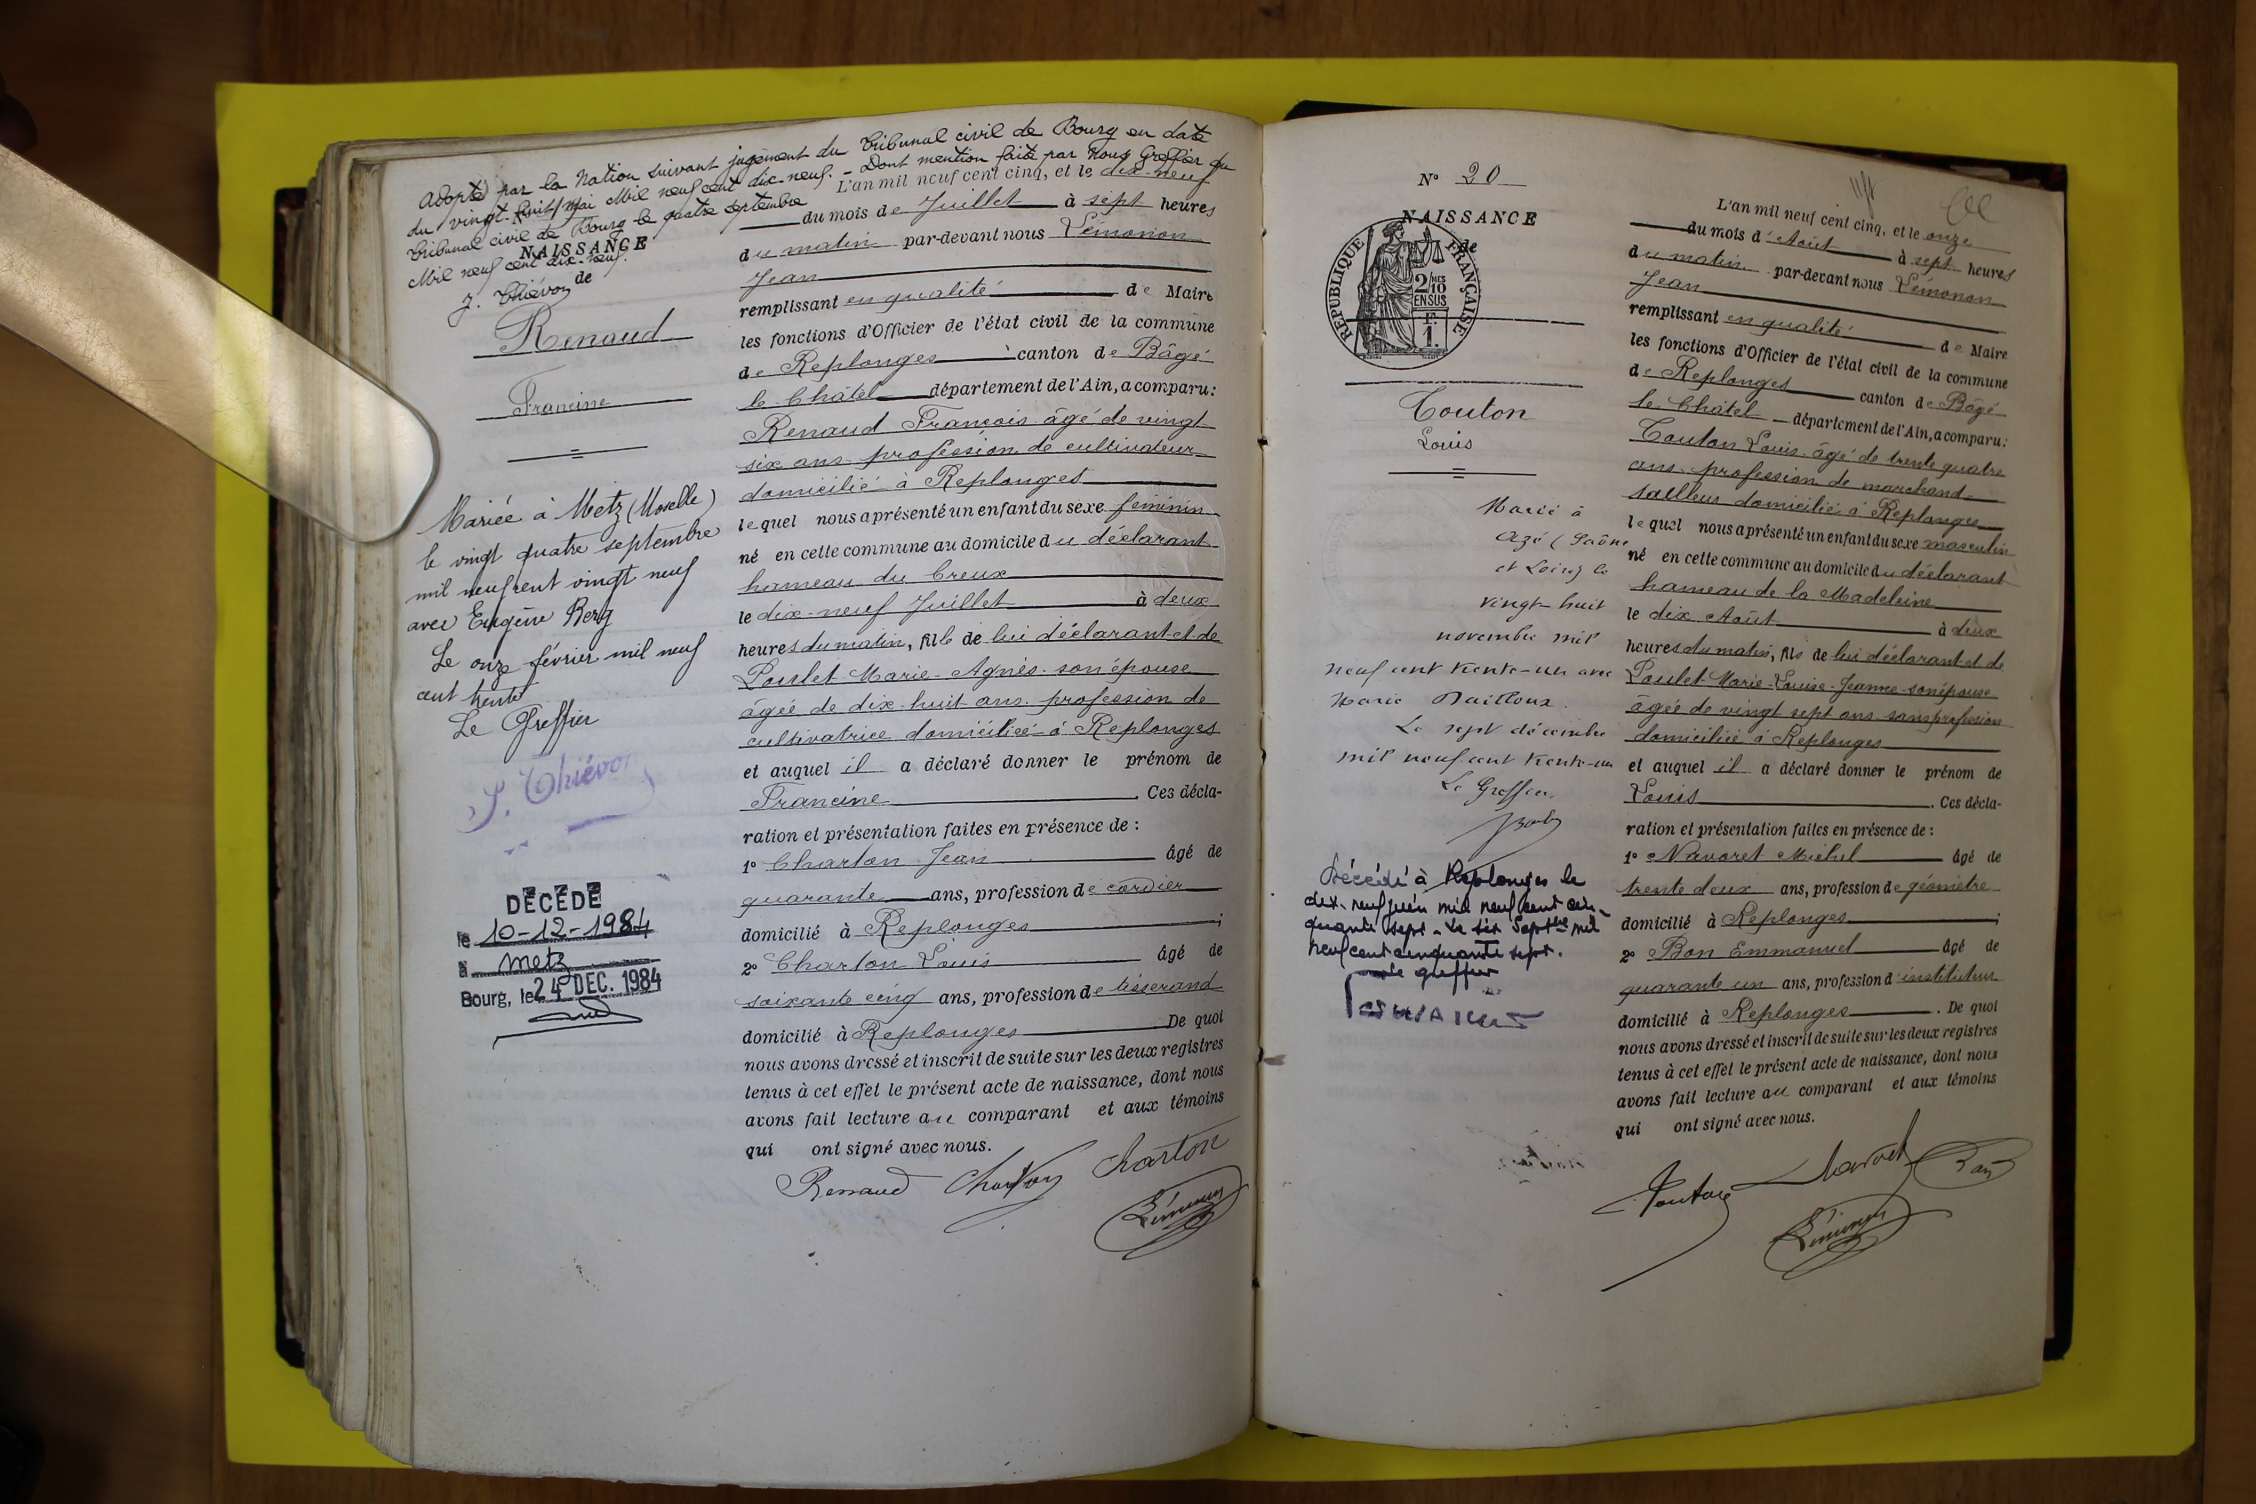 Adopté par la Nation suivant jugement du Tribunal civil de Bourg en date
du vingt-huit mai Mil neuf cent dix-neuf. - Dont mention faite par Nous Greffier du
Tribunal civil de Bourg le quatre septembre
Mil neuf cent dix-neuf.
J. Thiévon
NAISSANCE
de
Renaud
Francine
Mariée à Metz (Moselle)
le vingt quatre septembre
mil neuf cent vingt neuf
avec Eugène Berg
Le onze février mil neuf
cent trente
Le Greffier
J. Thiévon
DÉCÉDÉ
le 10-12-1984
à Metz
Bourg, le 24 DEC. 1984
L'an mil neuf cent cinq, et le dix-neuf
du mois de Juillet à sept heures
du matin par-devant nous Lémonon
Jean
remplissant en qualité de Maire
les fonctions d'Officier de l'état civil de la commune
de Replonges canton de Bâgé
le Châtel département de l'Ain, a comparu :
Renaud François âgé de vingt
six ans profession de cultivateur
domicilié à Replonges
lequel nous a présenté un enfant du sexe féminin
né en cette commune au domicile du déclarant
hameau du Creux
le dix-neuf Juillet à deux
heures du matin, fille de lui déclarant et de
Poulet Marie-Agnès son épouse
âgée de dix-huit ans profession de
cultivatrice domiciliée à Replonges
et auquel il a déclaré donner le prénom de
Francine. Ces décla-
ration et présentation faites en présence de :
1º Charton Jean âgé de
quarante ans, profession de cordier
domicilié à Replonges ;
2º Charton Louis âgé de
soixante cinq ans, profession de tisserand
domicilié à Replonges De quoi
nous avons dressé et inscrit de suite sur les deux registres
tenus à cet effet le présent acte de naissance, dont nous
avons fait lecture au comparant et aux témoins
qui ont signé avec nous.
Renaud Charton Charton
Lémonon
Nº 20
NAISSANCE
de
RÉPUBLIQUE FRANÇAISE
2/10 EN SUS
F. 1.
Touton
Louis
Marié à
Azé (Saône
et Loire) le
vingt-huit
novembre mil
neuf cent trente-un avec
Marie Nailloux.
Le sept décembre
mil neuf cent trente-un
Le Greffier,
Décédé à Replonges le
dix-neuf juin mil neuf cent cin-
quante sept. Le six Septbre mil
neuf cent cinquante sept.
Le greffier
L'an mil neuf cent cinq, et le onze
du mois d'Août à sept heures
du matin par-devant nous Lémonon
Jean
remplissant en qualité de Maire
les fonctions d'Officier de l'état civil de la commune
de Replonges canton de Bâgé
le Châtel département de l'Ain, a comparu :
Touton Louis âgé de trente quatre
ans profession de marchand
tailleur domicilié à Replonges
lequel nous a présenté un enfant du sexe masculin
né en cette commune au domicile du déclarant
hameau de la Madeleine
le dix Août à deux
heures du matin, fils de lui déclarant et de
Poulet Marie-Louise-Jeanne son épouse
âgée de vingt sept ans sans profession
domiciliée à Replonges
et auquel il a déclaré donner le prénom de
Louis. Ces décla-
ration et présentation faites en présence de :
1º Navoret Michel âgé de
trente deux ans, profession de géomètre
domicilié à Replonges ;
2º Bon Emmanuel âgé de
quarante un ans, profession d'instituteur
domicilié à Replonges. De quoi
nous avons dressé et inscrit de suite sur les deux registres
tenus à cet effet le présent acte de naissance, dont nous
avons fait lecture au comparant et aux témoins
qui ont signé avec nous.
Touton Navoret Bon
Lémonon